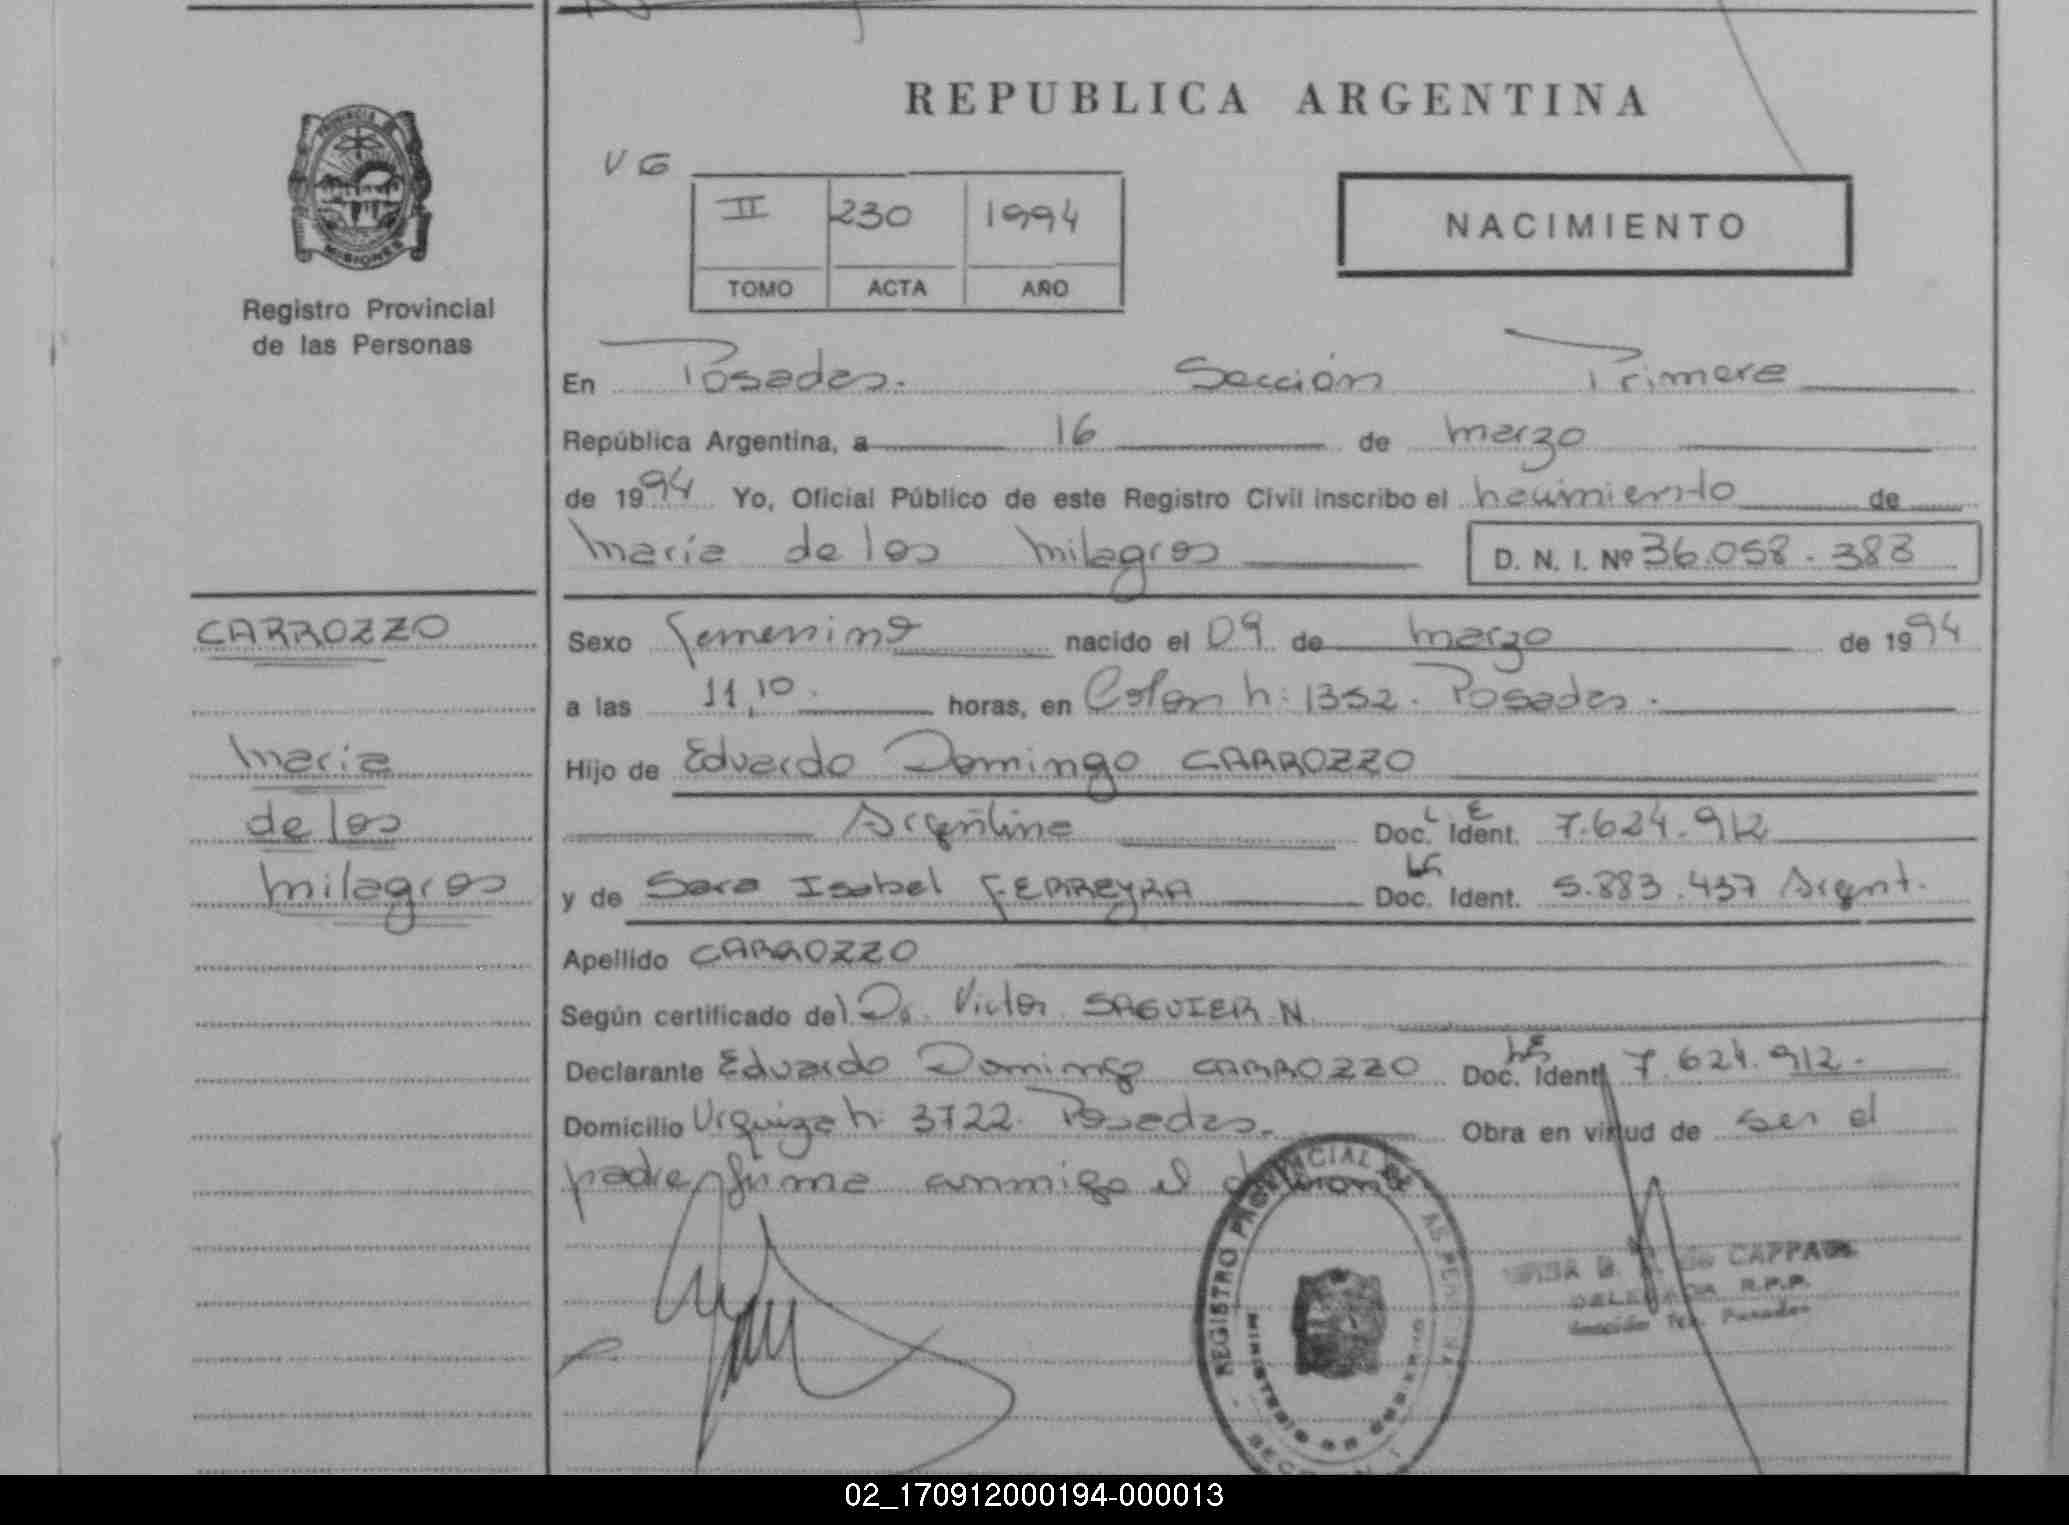 REPUBLICA ARGENTINA
PROVINCIA DE
MISIONES
Registro Provincial
de las Personas
VG
II 230 1994
TOMO ACTA AÑO
NACIMIENTO
En Posadas. Sección Primera
República Argentina, a 16 de marzo
de 1994 Yo, Oficial Público de este Registro Civil inscribo el nacimiento de
María de los milagros D. N. I. Nº 36.058.383
CARROZZO
María
de los
milagros
Sexo femenino nacido el 09 de marzo de 1994
a las 11,10. horas, en Colon n: 1352. Posadas.
Hijo de Eduardo Domingo CARROZZO
Argentino Doc. Ident. LE 7.624.912
y de Sara Isabel FERREYRA Doc. Ident. LC 5.883.437 Argent.
Apellido CARROZZO
Según certificado del Dr. Victor SAGUIER N.
Declarante Eduardo Domingo CARROZZO Doc. Ident. LE 7.624.912.
Domicilio Urquiza n: 3722. Posadas. Obra en virtud de ser el
padre firma conmigo el
REGISTRO PROVINCIAL DE LAS PERSONAS
MINISTERIO DE GOBIERNO
de CAPPA
DELEGADA R.P.P.
Sección 1ra. Posadas
02_170912000194-000013